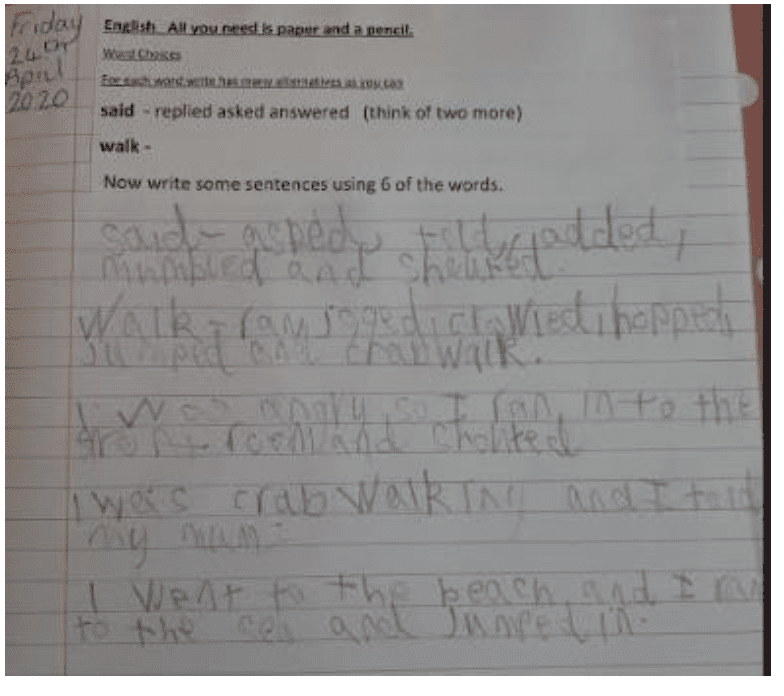 Friday
24th
April
2020
English All you need is paper and a pencil.
Word Choices
For each word write has many alternatives as you can
said - replied asked answered (think of two more)
walk -
Now write some sentences using 6 of the words.
said - asped, told, added,
mumbled and
Walk - ran, jogged, clawled, hopped,
Jumped and crab walk.
I was angry so I ran in to the
front room and shouted
I was crab walking and I told
my mum.
I went to the beach and I ran
to the sea and Jumped in.